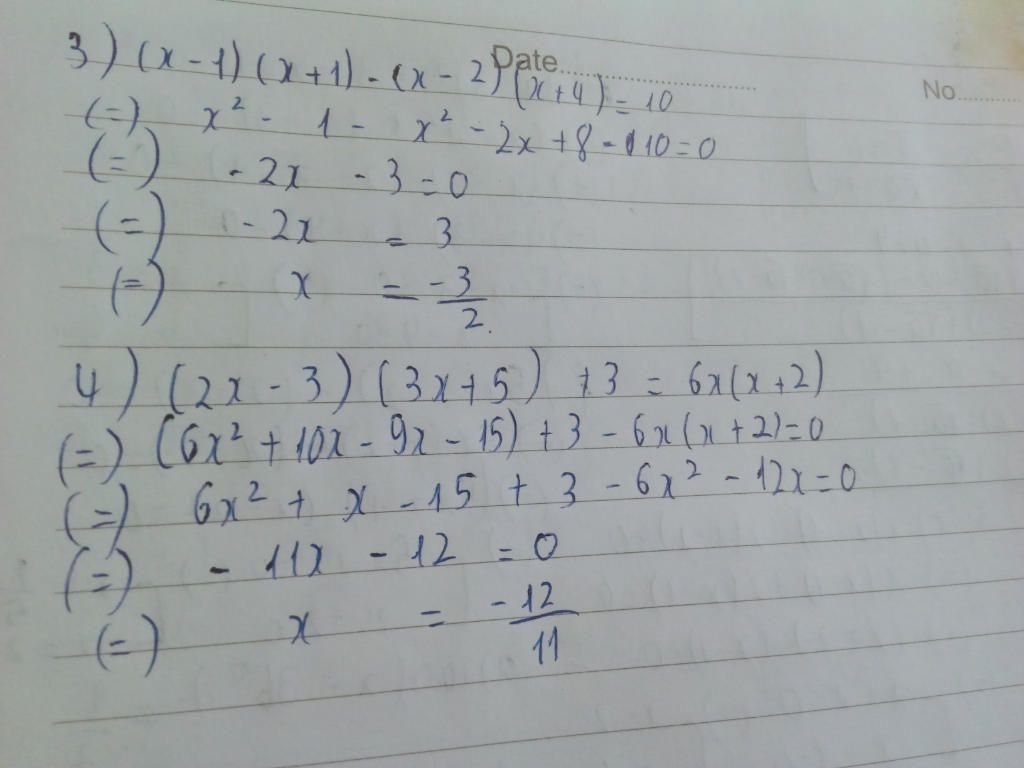 Date
No
3) (x-1)(x+1)-(x-2)(x+4)=10
(=) x² - 1 - x² - 2x + 8 - 10 = 0
(=) - 2x - 3 = 0
(=) - 2x = 3
(=) x = -3/2.
4) (2x-3)(3x+5) +3 = 6x(x+2)
(=) (6x² + 10x - 9x - 15) + 3 - 6x(x+2)=0
(=) 6x² + x - 15 + 3 - 6x² - 12x = 0
(=) - 11x - 12 = 0
(=) x = -12/11